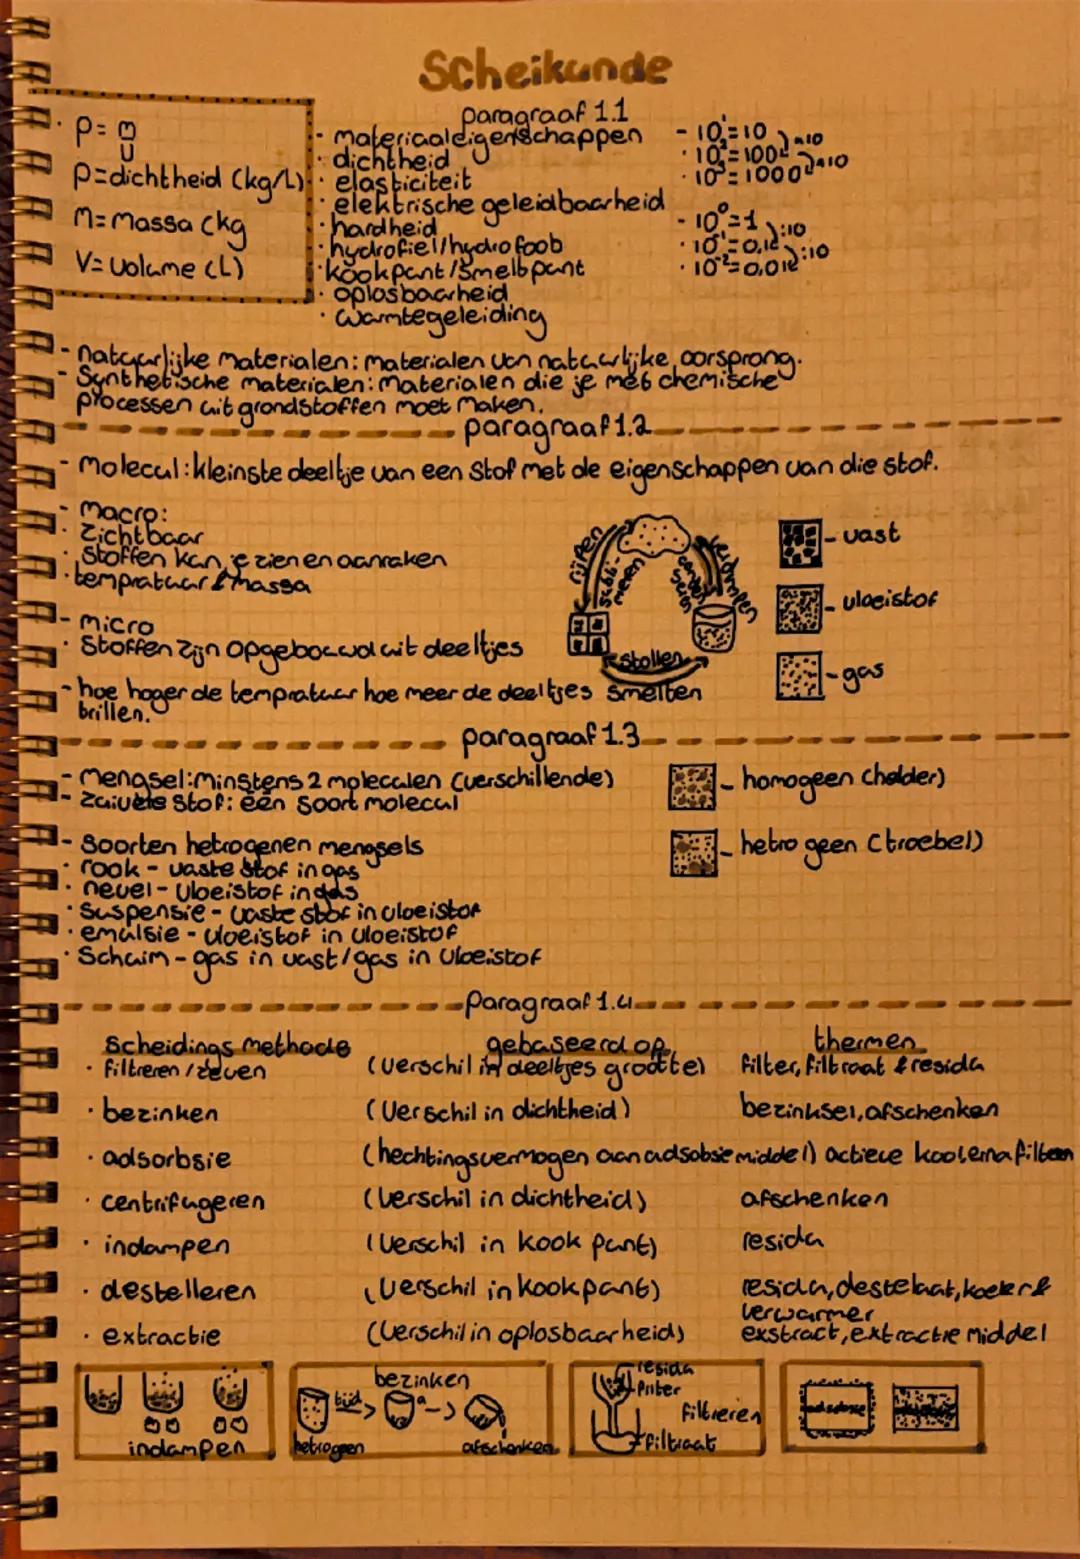 Scheikunde
paragraaf 1.1
ρ = m
V
ρ=dichtheid (kg/L)
M=Massa (kg
V=Volume (L)
- materiaaleigenschappen
· dichtheid
· elasticiteit
· elektrische geleidbaarheid
· hardheid
· hydrofiel/hydrofoob
· kookpunt/smeltpunt
· oplosbaarheid
· warmtegeleiding
- 10¹=10
· 10²=100
· 10³=1000
×10
×10
- 10⁰=1
· 10⁻¹=0,1
· 10⁻²=0,01
:10
:10
- natuurlijke materialen: materialen van natuurlijke oorsprong.
- Synthetische materialen: materialen die je met chemische
processen uit grondstoffen moet maken.
paragraaf 1.2
- molecul: kleinste deeltje van een stof met de eigenschappen van die stof.
- macro:
· zichtbaar
· stoffen kan je zien en aanraken
· tempratuur & massa
- micro
· Stoffen zijn opgebouwd uit deeltjes
- hoe hoger de tempratuur hoe meer de deeltjes
brillen.
rijpen
subli-
meren
conden
seren
verdampen
stollen
smelten
- vast
- vloeistof
- gas
paragraaf 1.3
- mengsel: minstens 2 moleculen (verschillende)
- zuivere stof: één soort molecul
- homogeen (helder)
- hetrogeen (troebel)
- Soorten hetrogenen mengsels
· rook - vaste stof in gas
· nevel - vloeistof in gas
· suspensie - vaste stof in vloeistof
· emulsie - vloeistof in vloeistof
· Schuim - gas in vast/gas in vloeistof
paragraaf 1.4
Scheidings methode gebaseerd op thermen
· filtreren / zeven (verschil in deeltjes grootte) filter, filtraat & residu
· bezinken (verschil in dichtheid) bezinksel, afschenken
· adsorbsie (hechtingsvermogen aan adsobsie middel) actieve koolerna filteren
· centrifugeren (verschil in dichtheid) afschenken
· indampen (verschil in kookpunt) residu
· destelleren (verschil in kookpunt) residu, destelaat, koeler &
verwarmer
· extractie (verschil in oplosbaarheid) exstract, extractie middel
indampen
bezinken
tijd
hetrogeen
afschenken
residu
filter
filtreren
filtraat
adsobsie